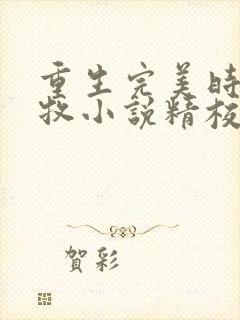 重生完美時
牧小說精校
賀彩